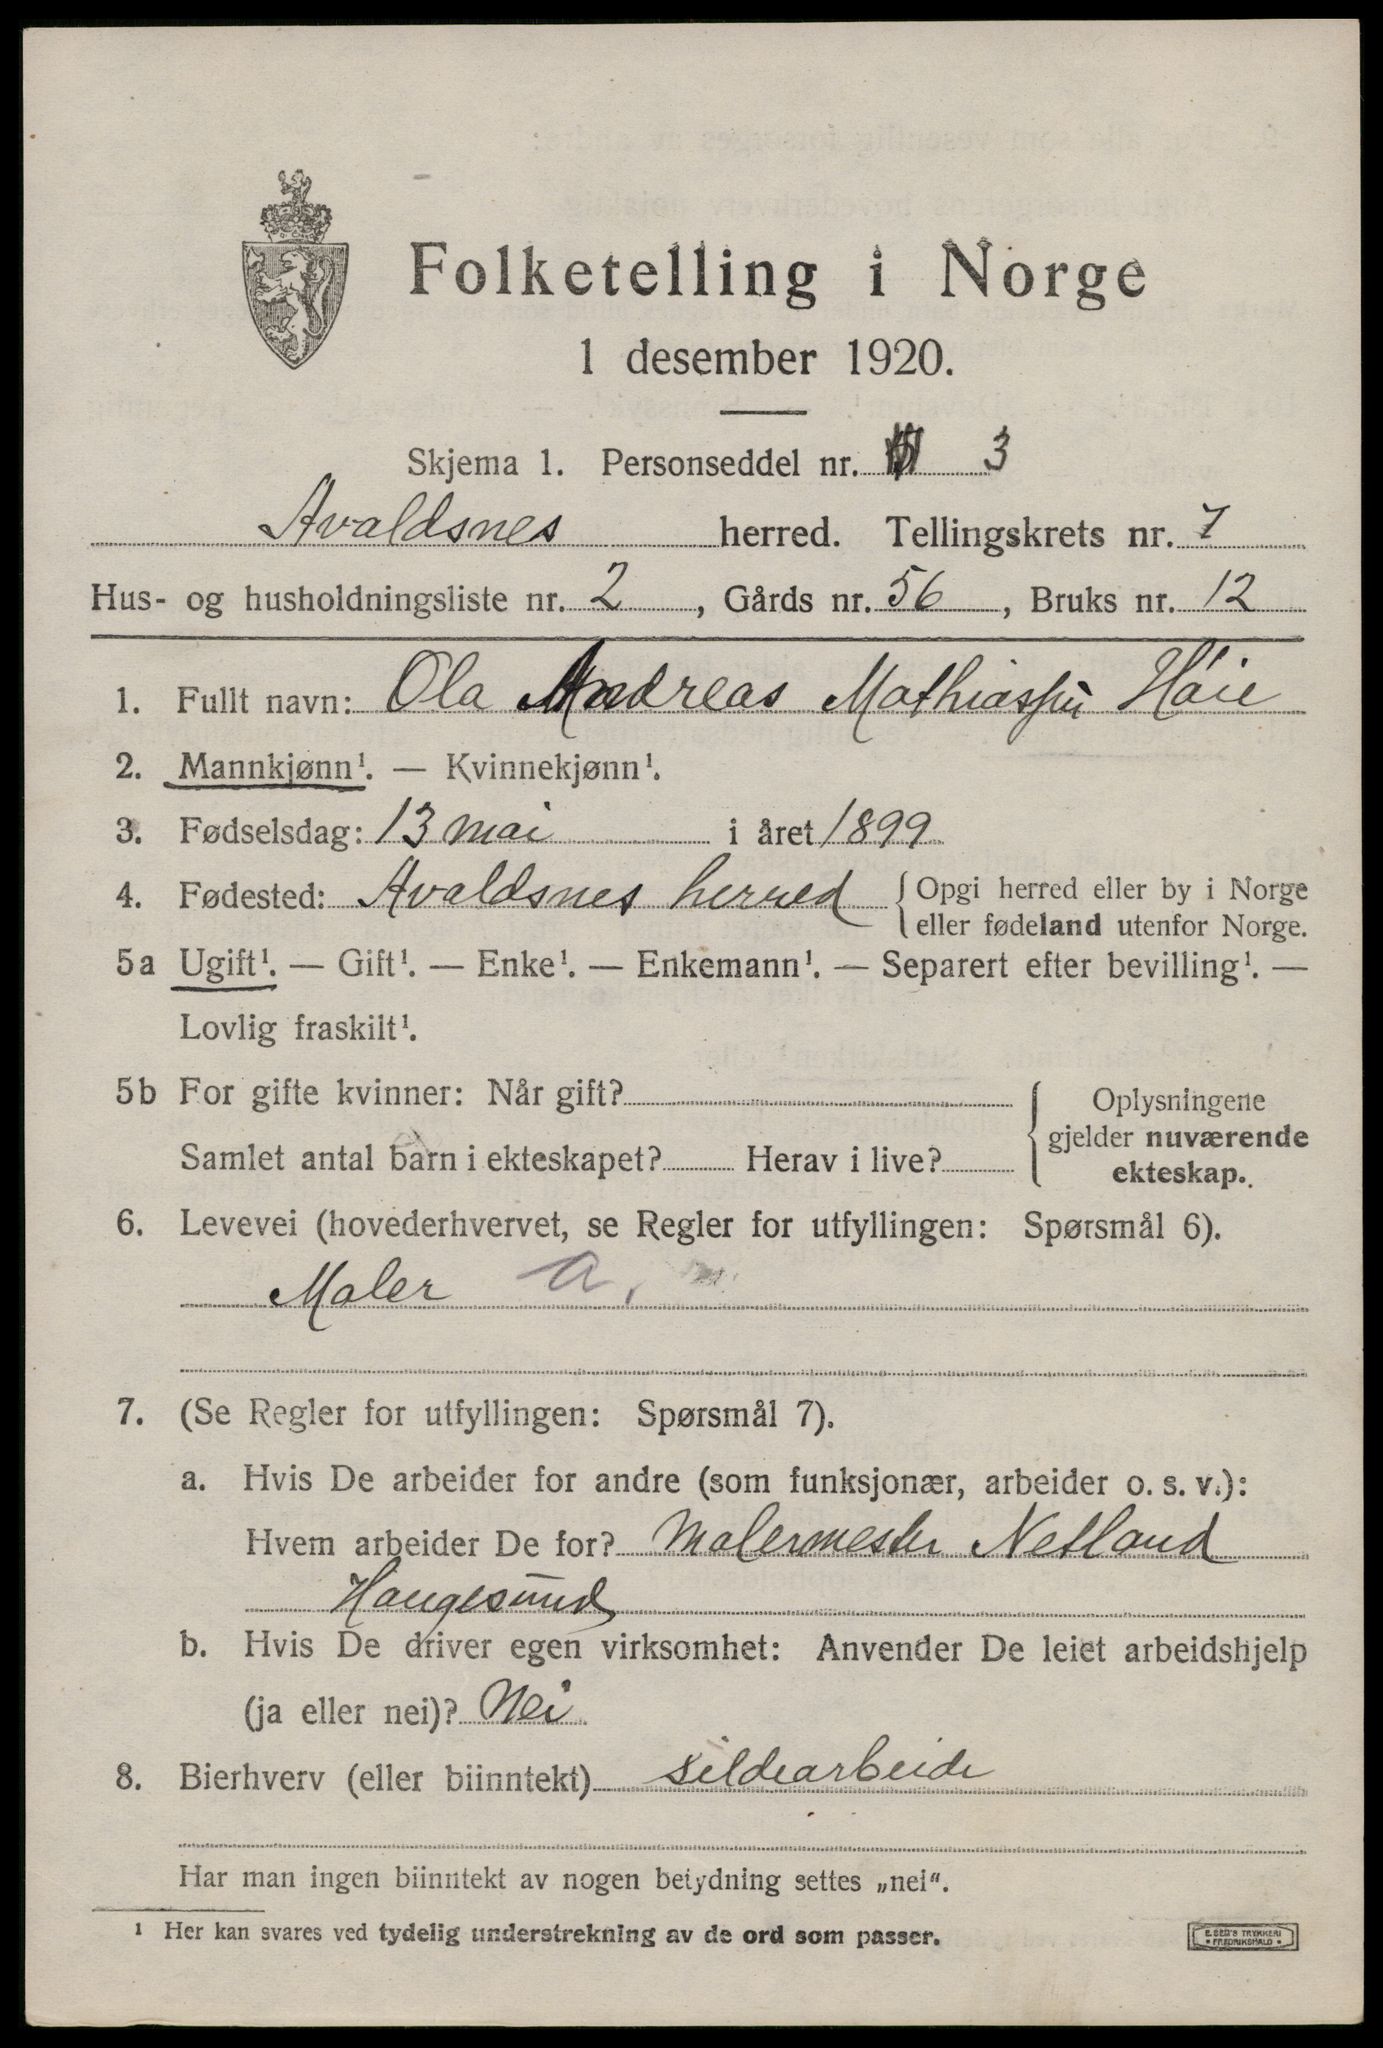 Folketelling i Norge
1 desember 1920.
Skjema 1. Personseddel nr. 3
Avaldsnes herred. Tellingskrets nr. 7
Hus- og husholdningsliste nr. 2, Gårds nr. 56, Bruks nr. 12
1. Fullt navn: Ola Andreas Mathiassen Høie
2. Mannkjønn¹. — Kvinnekjønn¹.
3. Fødselsdag: 13 mai i året 1899
4. Fødested: Avaldsnes herred { Opgi herred eller by i Norge
eller fødeland utenfor Norge.
5a Ugift¹. — Gift¹. — Enke¹. — Enkemann¹. — Separert efter bevilling¹. —
Lovlig fraskilt¹.
5b For gifte kvinner: Når gift? { Oplysningene
gjelder nuværende
Samlet antal barn i ekteskapet? Herav i live?
ekteskap.
6. Levevei (hovederhvervet, se Regler for utfyllingen: Spørsmål 6).
Maler a.
7. (Se Regler for utfyllingen: Spørsmål 7).
a. Hvis De arbeider for andre (som funksjonær, arbeider o. s. v.):
Hvem arbeider De for? Malermester Netland
Haugesund
b. Hvis De driver egen virksomhet: Anvender De leiet arbeidshjelp
(ja eller nei)? Nei
8. Bierhverv (eller biinntekt) sildearbeide
Har man ingen biinntekt av nogen betydning settes „nei“.
¹ Her kan svares ved tydelig understrekning av de ord som passer.
E. SEM'S TRYKKERI
• FREDRIKSHALD •